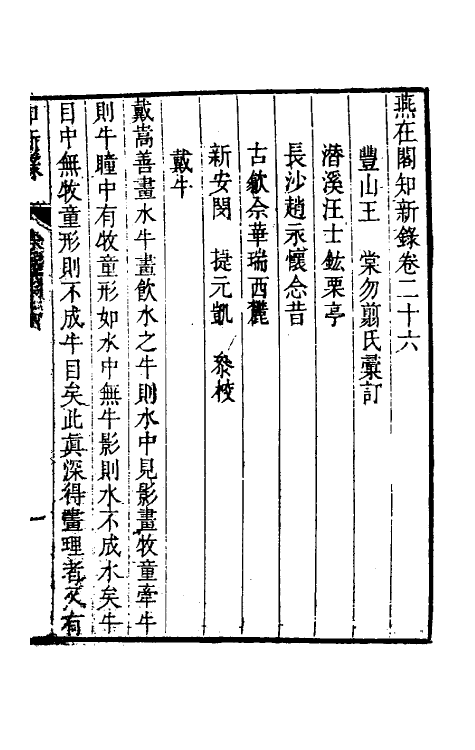 燕在閣知新錄卷二十六
豐山王　棠勿翦氏彙訂
潛溪汪士鋐栗亭
長沙趙永懷念昔
古歙佘華瑞西麓
新安閔　㨗元凱　叅校
戴牛
戴嵩善畫水牛畫飲水之牛則水中見影畫牧童牽牛
則牛瞳中有牧童形如水中無牛影則水不成水矣牛
目中無牧童形則不成牛目矣此眞深得畫理者又有
知新錄
一